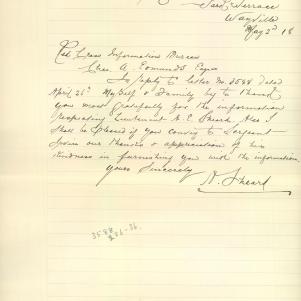 Terrace
Wayville
May 2nd 18
Red Cross Information Bureau
Chas A. Edmunds Esqre
In reply to letter No 3588 dated
April 26th Myself & Family beg to thank
you most gratefully for the information
respecting Lieutenant N. E. Sheard. Also I
shall be pleased if you convey to Sergent
our thanks & appreciation of his
kindness in furnishing you with the information
Yours Sincerely
N. Sheard
3588